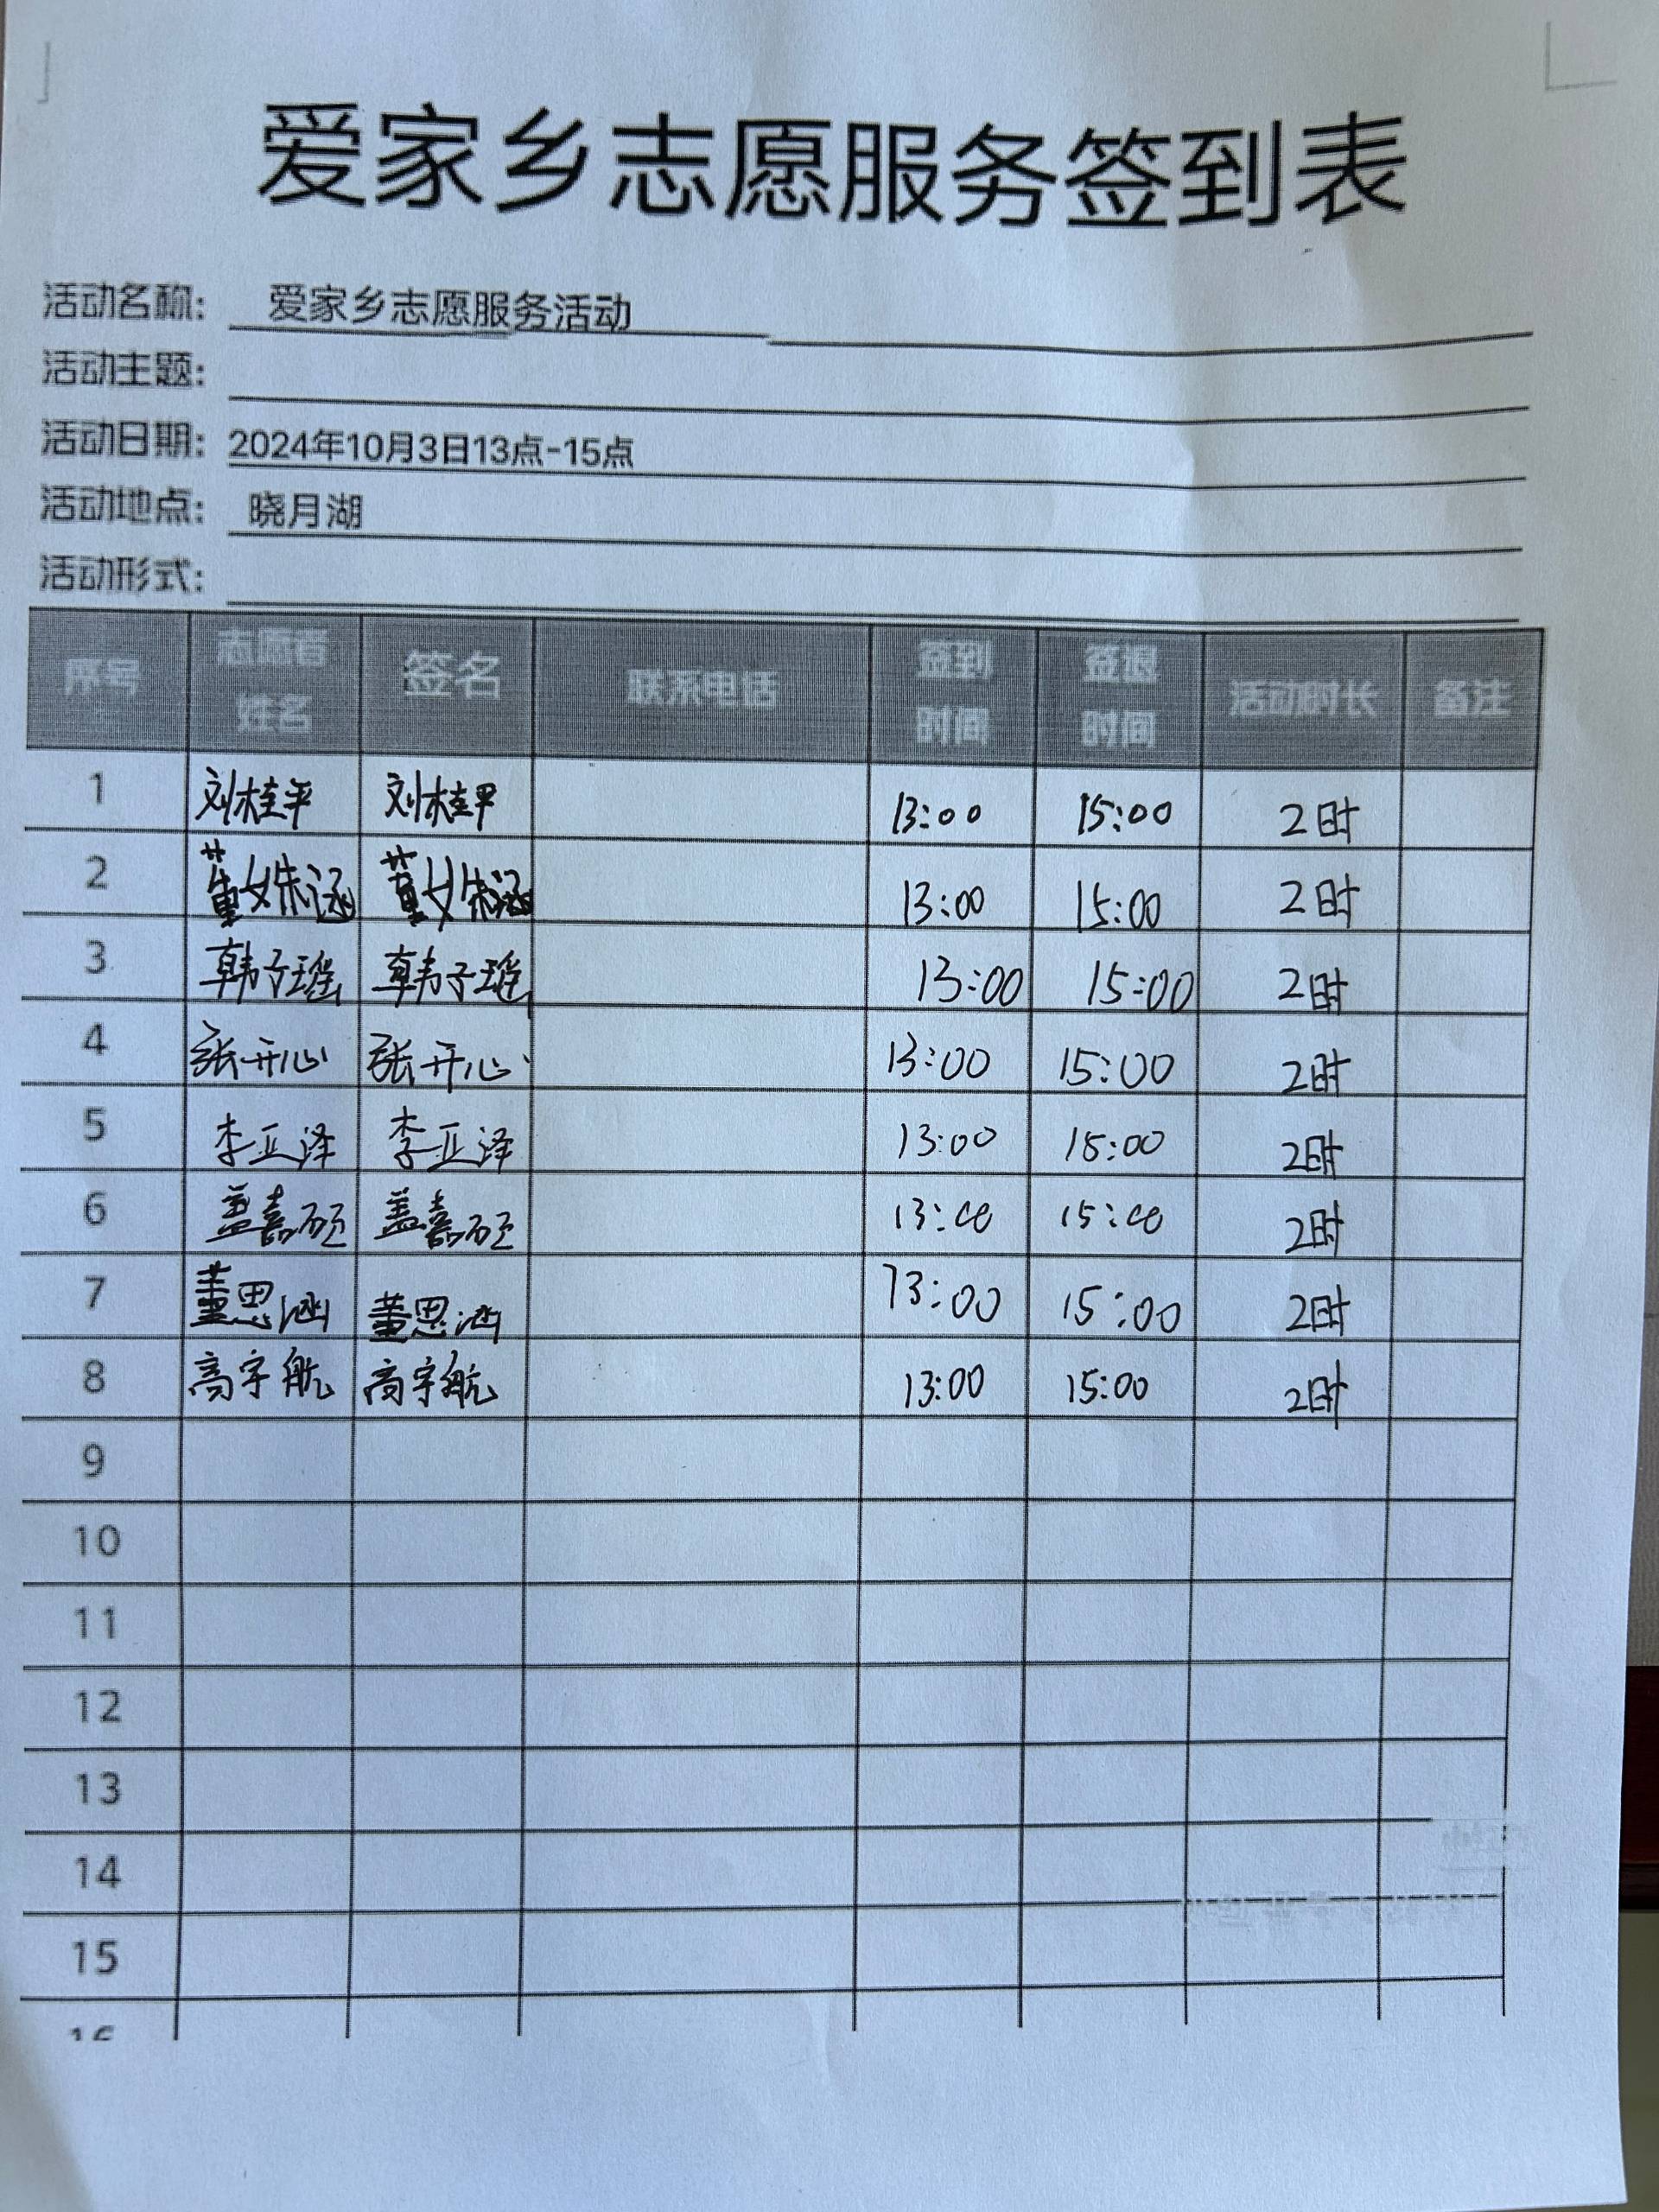 爱家乡志愿服务签到表
活动名称: 爱家乡志愿服务活动
活动主题:
活动日期: 2024年10月3日13点-15点
活动地点: 晓月湖
活动形式:
序号 志愿者姓名 签名 联系电话 签到时间 签退时间 活动时长 备注
1 刘桂平 刘桂平 13:00 15:00 2时
2 董姝涵 董姝涵 13:00 15:00 2时
3 韩子瑶 韩子瑶 13:00 15:00 2时
4 张开心 张开心 13:00 15:00 2时
5 李亚泽 李亚泽 13:00 15:00 2时
6 盖嘉硕 盖嘉硕 13:00 15:00 2时
7 董思涵 董思涵 13:00 15:00 2时
8 高宇航 高宇航 13:00 15:00 2时
9
10
11
12
13
14
15
16